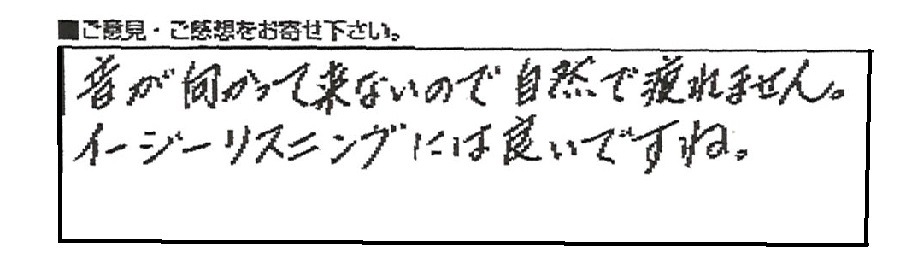 ■ご意見・ご感想をお寄せ下さい。
音が向かって来ないので自然で疲れません。
イージーリスニングには良いですね。